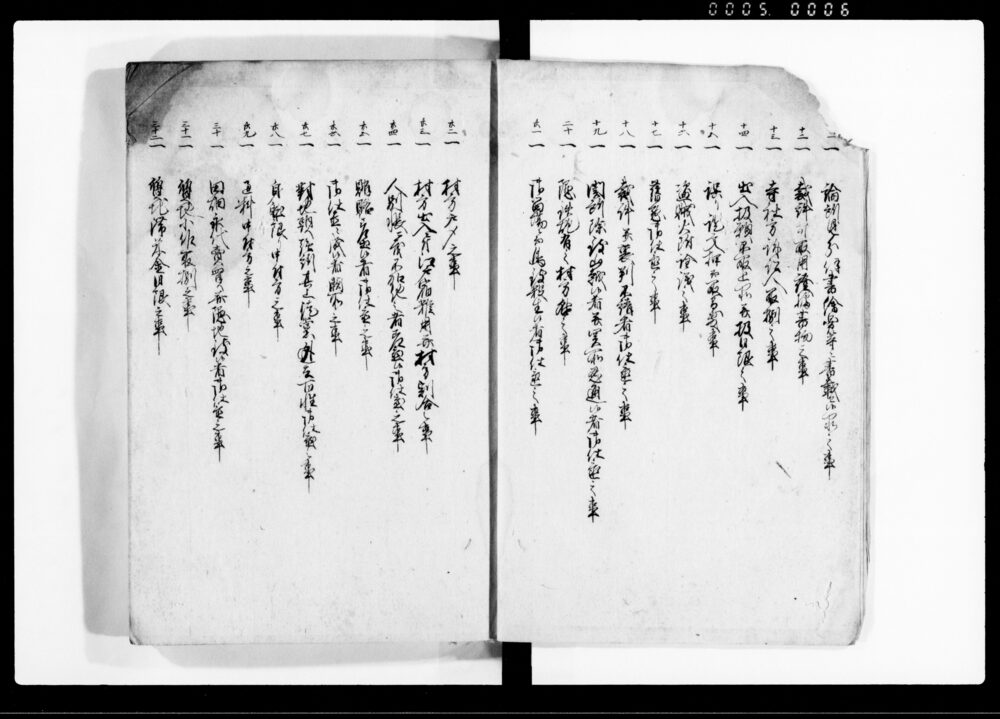 0005. 0006
十一一 論所見分伺書絵図等ニ書載候品之事
十二一 裁許可取用證拠書物之事
十三一 寺社方訴訟人取捌之事
十四一 出入扱願不取上品并扱日限之事
十五一 誤證文押而取間敷事
十六一 盗賊火附詮議之事
十七一 舊悪御仕置之事
十八一 裁許并裏判不請者御仕置之事
十九一 関所除ケ山越いたし候者并関所忍通候者御仕置之事
二十一 隠鉄炮有之村方咎之事
廿一一 御留場ニ而鳥殺生いたし候者御仕置之事
廿二一 村方戸〆之事
廿三一 村方出入ニ付江戸宿雑用并村方割合之事
廿四一 人別帳ニ不加他之者差置候御仕置之事
廿五一 賄賂差出候者御仕置之事
廿六一 御仕置ニ成候者闕所之事
廿七一 対地頭強訴其上徒党逃散百姓御仕置之事
廿八一 身代限り申付方之事
廿九一 過料申付方之事
三十一 田畑永代売買并隠地いたし候者御仕置之事
三十一一 質地小作取捌之事
三十二一 質地滞米金日限之事